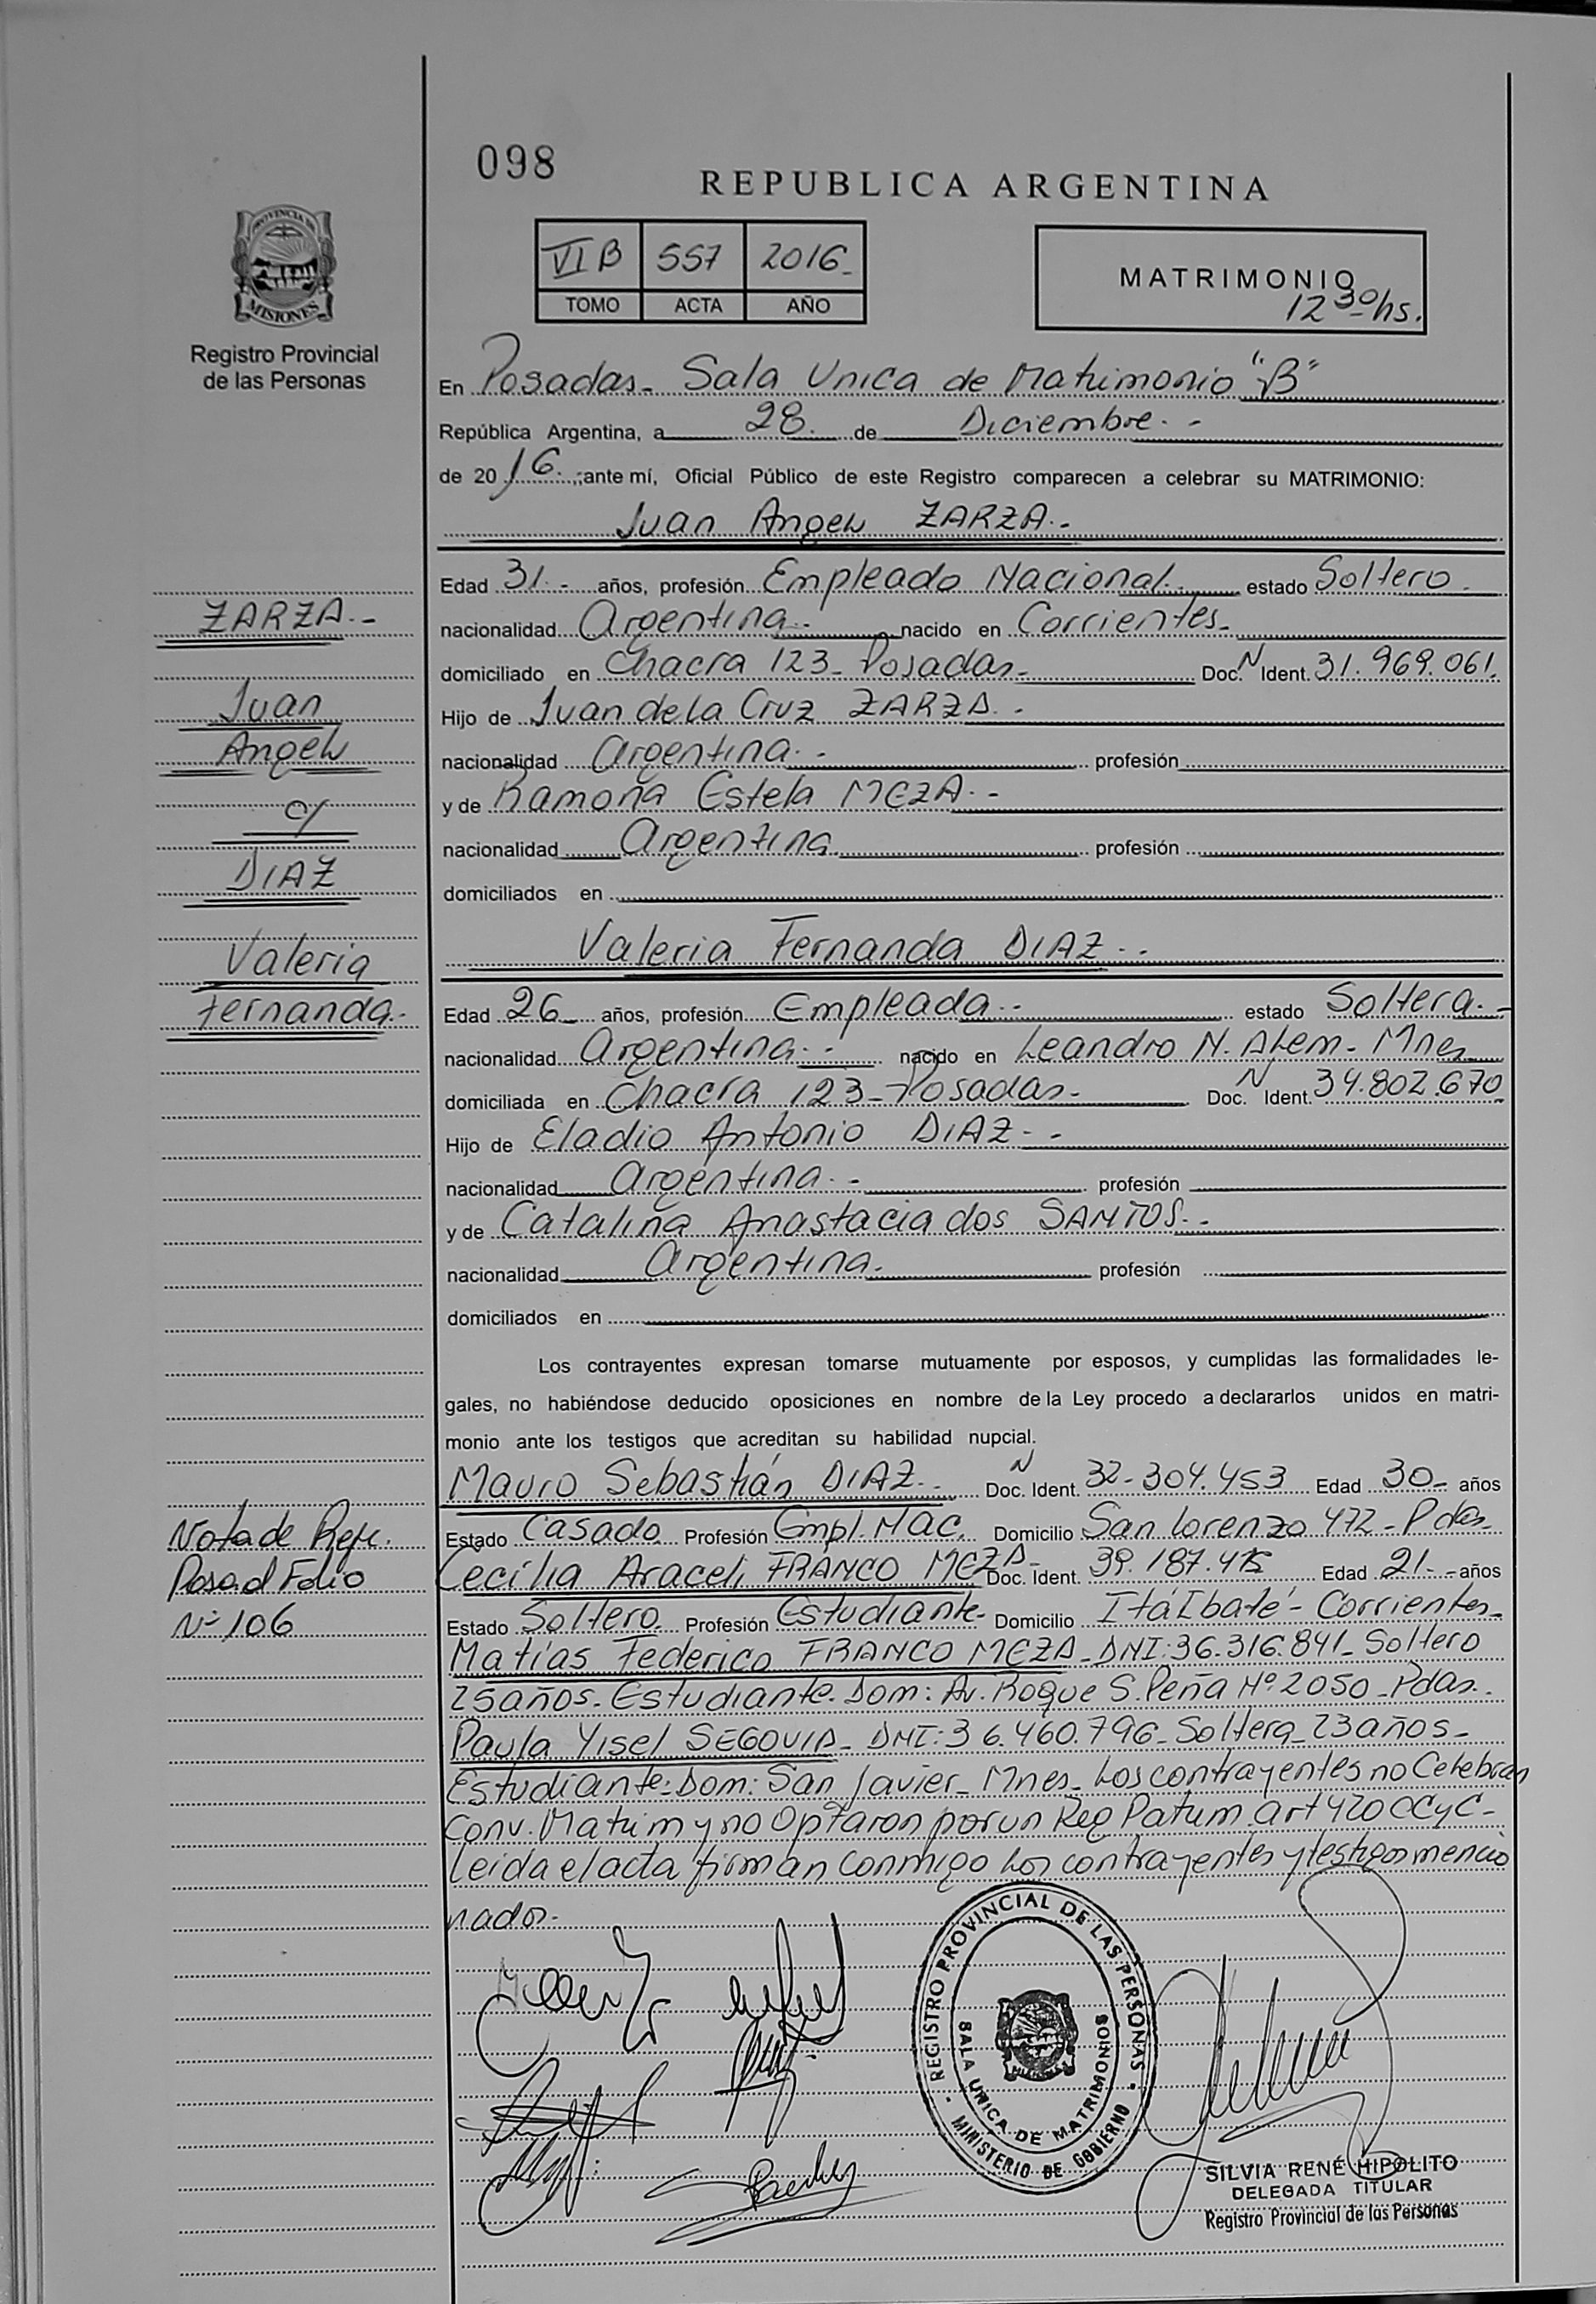 098
REPUBLICA ARGENTINA
VI B 557 2016-
TOMO ACTA AÑO
MATRIMONIO
12 30 hs.
PROVINCIA DE
MISIONES
Registro Provincial
de las Personas
En Posadas- Sala Unica de Matrimonio "B"
República Argentina, a 28. de Diciembre.-
de 2016. ,ante mí, Oficial Público de este Registro comparecen a celebrar su MATRIMONIO:
Juan Angel ZARZA.-
Edad 31.- años, profesión Empleado Nacional. estado Soltero.
nacionalidad Argentina.- nacido en Corrientes-
domiciliado en Chacra 123- Posadas- Doc. N Ident. 31.969.061.
Hijo de Juan de la Cruz ZARZA.-
nacionalidad Argentina.- profesión
y de Ramona Estela MEZA.-
nacionalidad Argentina. profesión
domiciliados en
Valeria Fernanda DIAZ.-
Edad 26- años, profesión Empleada.- estado Soltera.-
nacionalidad Argentina.- nacido en Leandro N. Alem- Mnes
domiciliada en Chacra 123- Posadas- Doc. N Ident. 34.802.670
Hijo de Eladio Antonio DIAZ.-
nacionalidad Argentina.- profesión
y de Catalina Anastacia dos SANTOS.-
nacionalidad Argentina. profesión
domiciliados en
Los contrayentes expresan tomarse mutuamente por esposos, y cumplidas las formalidades le-
gales, no habiéndose deducido oposiciones en nombre de la Ley procedo a declararlos unidos en matri-
monio ante los testigos que acreditan su habilidad nupcial.
Mauro Sebastián DIAZ.- Doc. N Ident. 32-304.453 Edad 30- años
Estado Casado. Profesión Empl. Nac. Domicilio San Lorenzo 472- Pdas-
Cecilia Araceli FRANCO MEZA- Doc. Ident. 39.187.4 Edad 21.- años
Estado Soltero. Profesión Estudiante- Domicilio Itá Ibaté- Corrientes-
Matías Federico FRANCO MEZA- DNI: 36.316.841- Soltero
25años- Estudiante- Dom: Av. Roque S. Peña Nº 2050- Pdas.
Paula Yisel SEGOVIA- DNI: 36.460.796- Soltera- 23años-
Estudiante- Dom: San Javier- Mnes- Los contrayentes no Celebran
Conv. Matrim y no Optaron por un Reg Patrim. art 420 CCyC-
Leida el acta firman Conmigo Los contrayentes y testigos mencio
nados-
ZARZA.-
Juan
Angel
c/
DIAZ
Valeria
Fernanda.-
Nota de Ref.
Pasa al Folio
Nº 106
REGISTRO PROVINCIAL DE LAS PERSONAS
SALA UNICA DE MATRIMONIOS
MINISTERIO DE GOBIERNO
SILVIA RENÉ HIPOLITO
DELEGADA TITULAR
Registro Provincial de las Personas